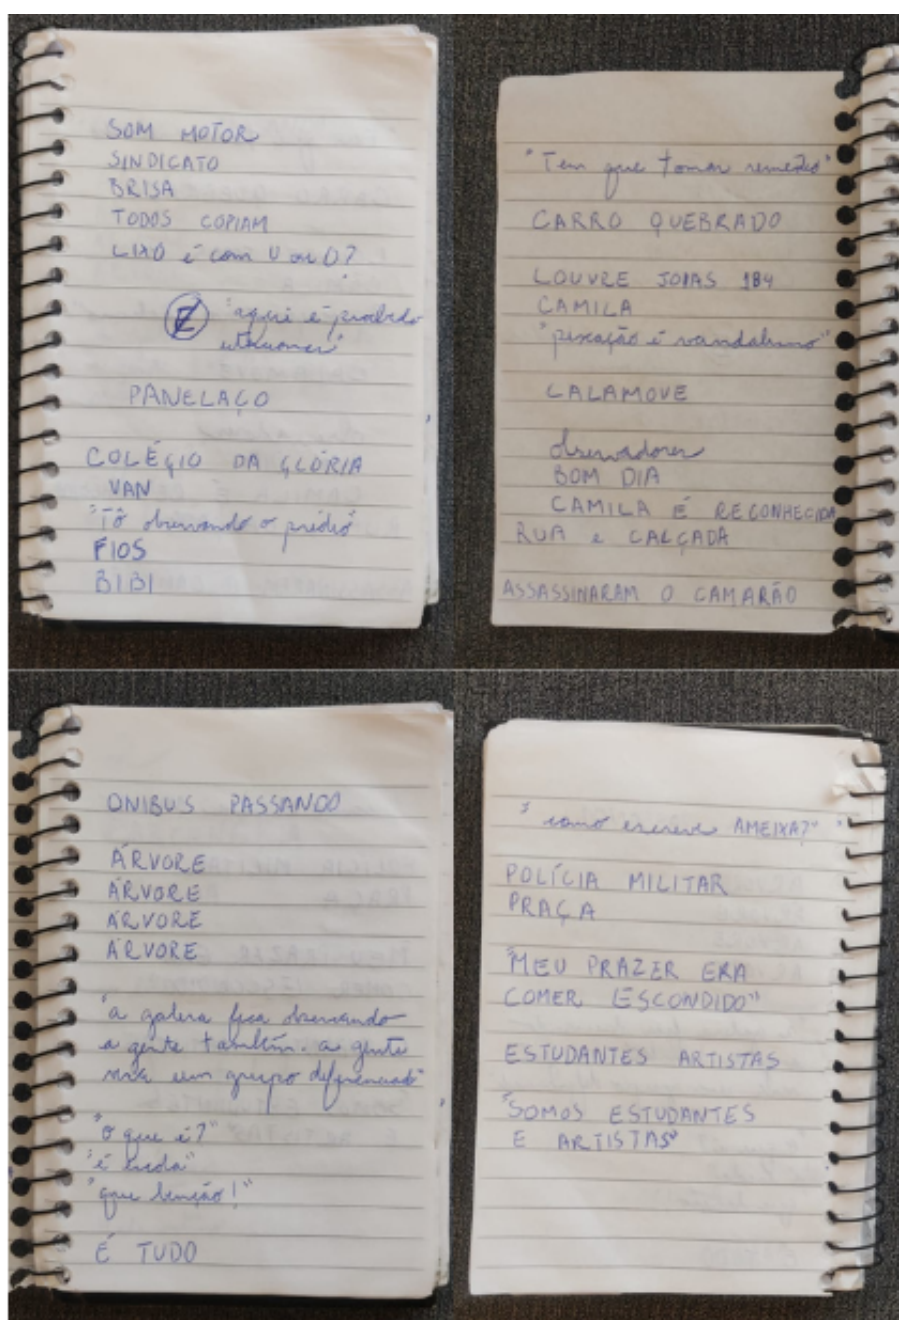 SOM MOTOR
SINDICATO
BRISA
TODOS COPIAM
LIXO é com U ou O?
E "aqui é proibido
estacionar"
PANELAÇO
COLÉGIO DA GLÓRIA
VAN
"Tô observando o prédio"
FIOS
BIBI
"Tem que tomar remédio"
CARRO QUEBRADO
LOUVRE JOIAS 184
CAMILA
"pixação é vandalismo"
LALAMOVE
observadores
BOM DIA
CAMILA É RECONHECIDA
RUA e CALÇADA
ASSASSINARAM O CAMARÃO
ONIBUS PASSANDO
ÁRVORE
ÁRVORE
ÁRVORE
ÁRVORE
"a galera fica observando
a gente também. a gente
vira um grupo diferenciado"
"O que é?"
"é
"que benção!"
É TUDO
"como escreve AMEIXA?"
POLÍCIA MILITAR
PRAÇA
"MEU PRAZER ERA
COMER ESCONDIDO"
ESTUDANTES ARTISTAS
"SOMOS ESTUDANTES
E ARTISTAS"